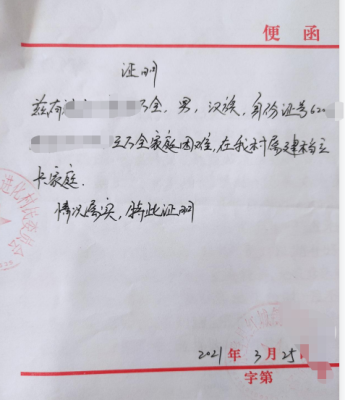 便 函
证明
兹有 全,男,汉族,身份证号620
全家庭困难,在我村属建档立
卡家庭.
情况属实,特此证明
2021年 3月25
字第